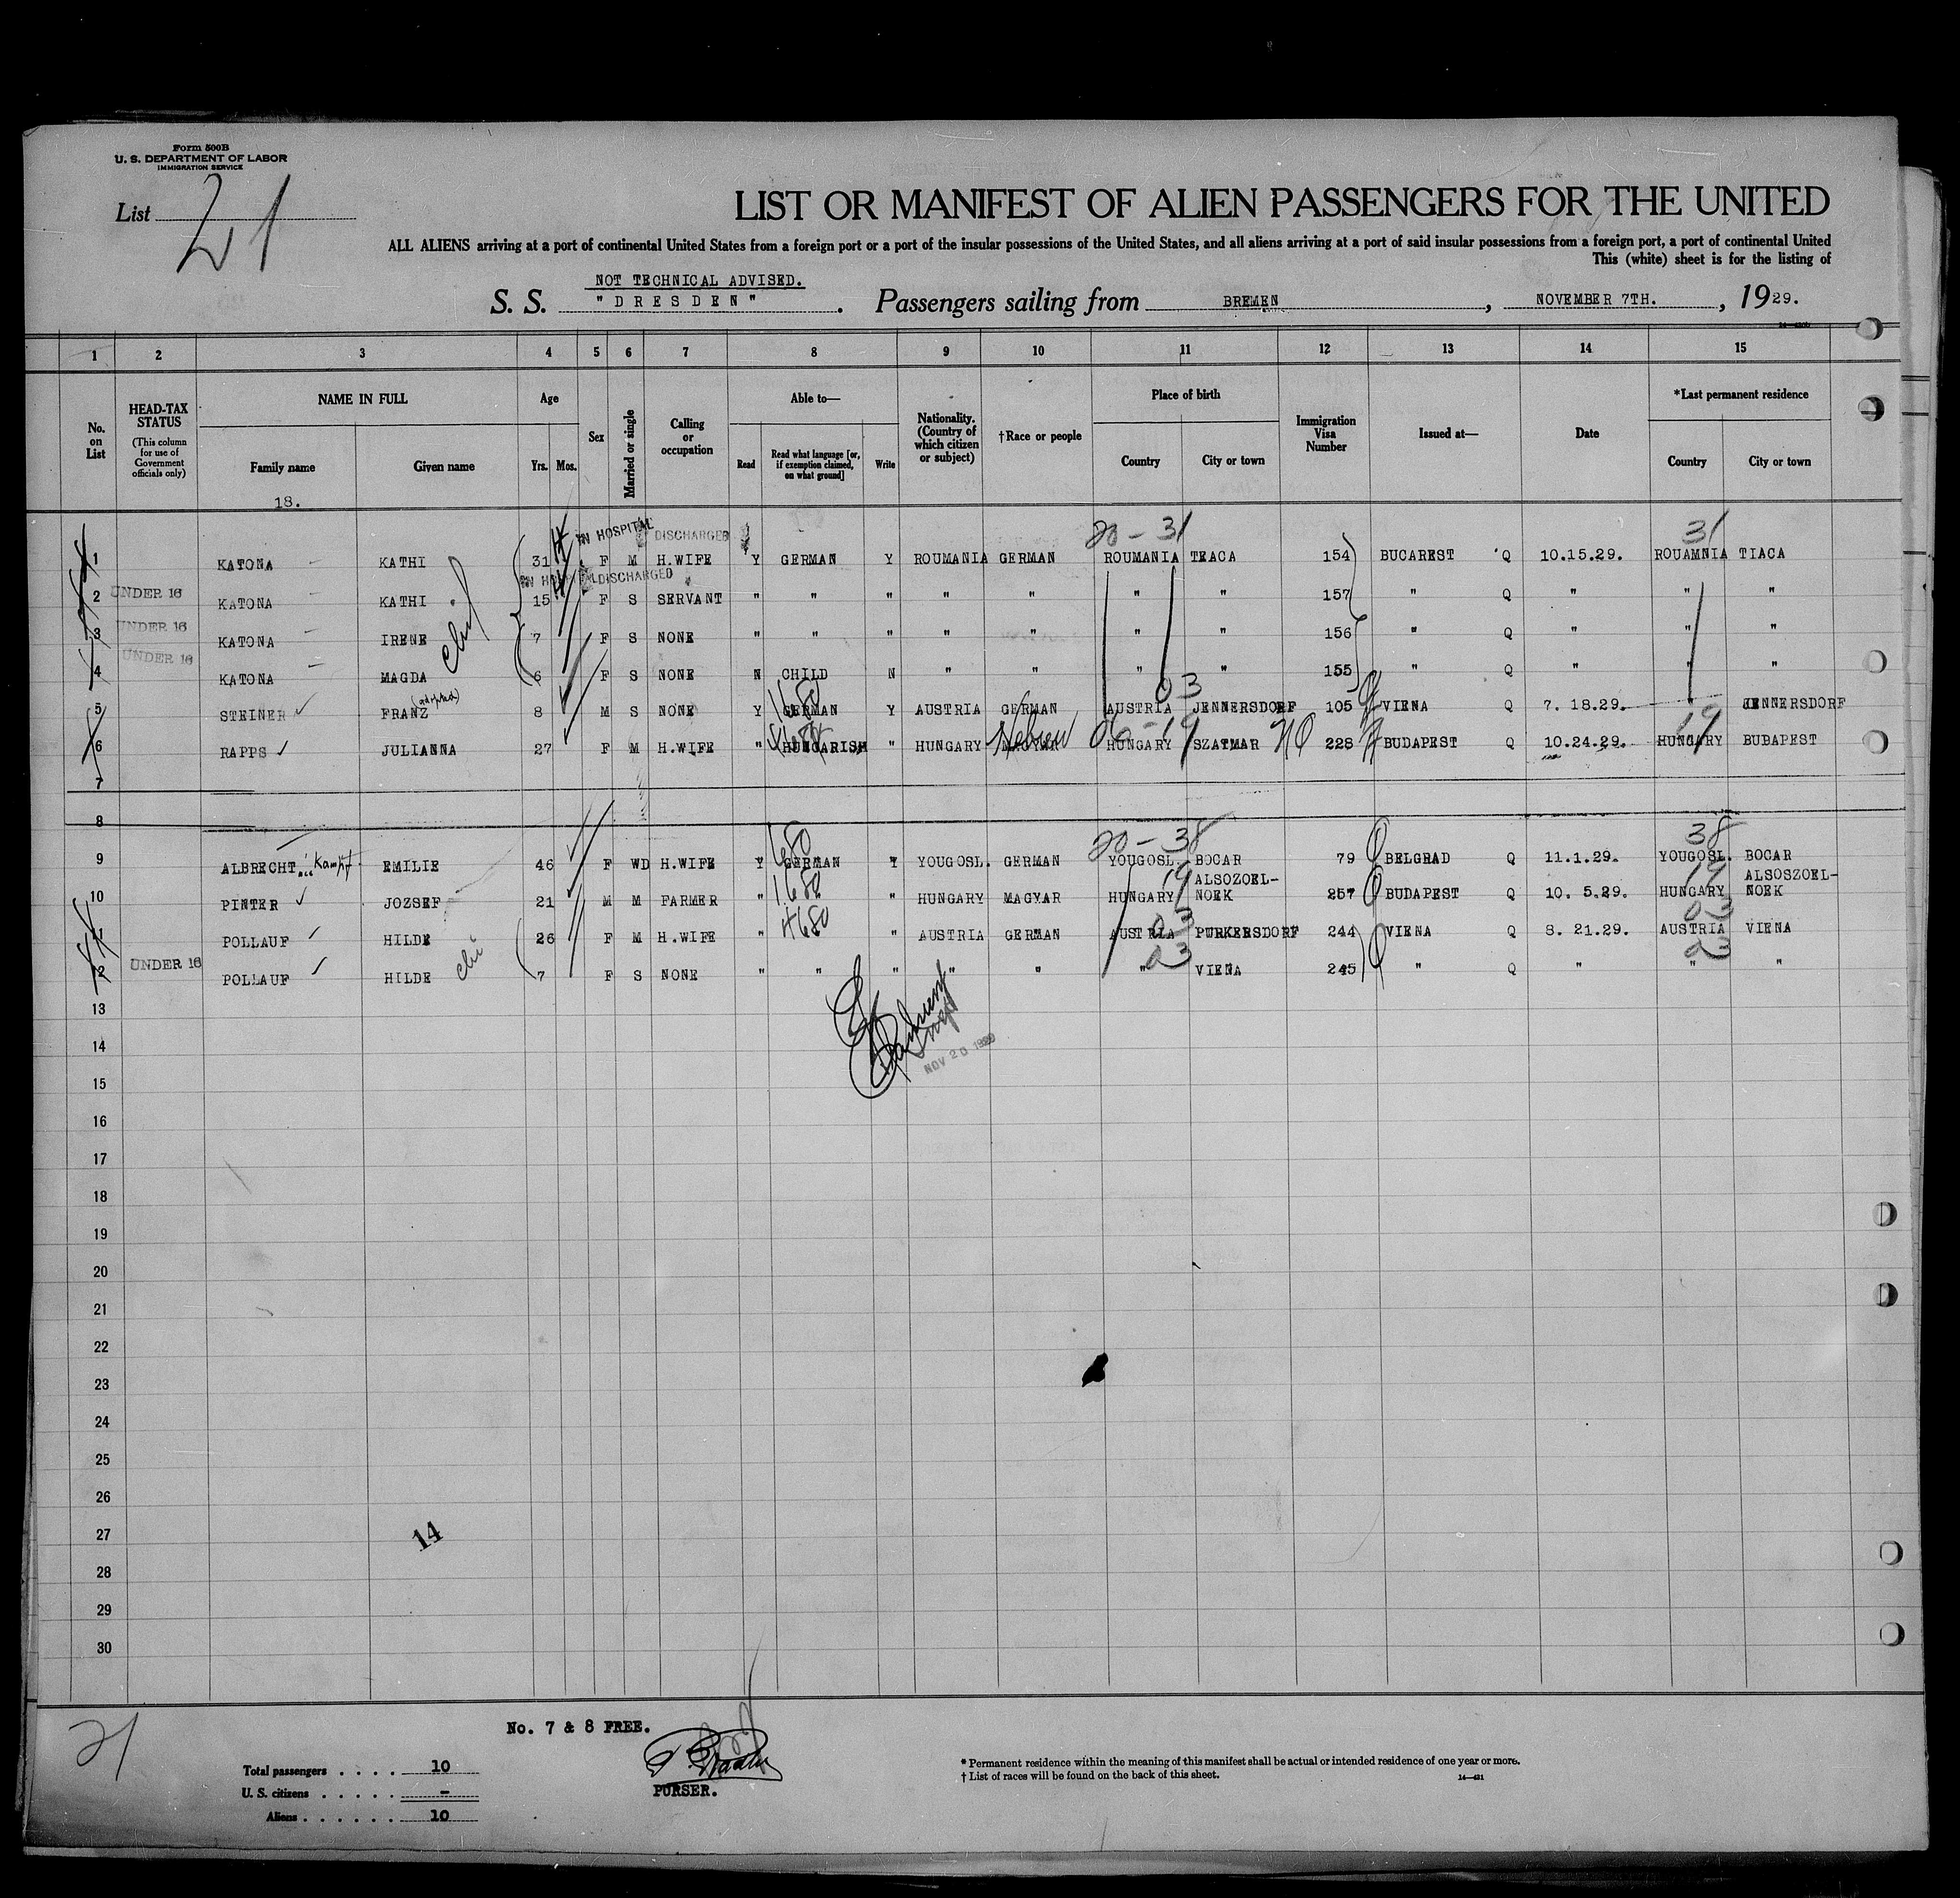 Form 500B
U. S. DEPARTMENT OF LABOR
IMMIGRATION SERVICE
List 21
LIST OR MANIFEST OF ALIEN PASSENGERS FOR THE UNITED
ALL ALIENS arriving at a port of continental United States from a foreign port or a port of the insular possessions of the United States, and all aliens arriving at a port of said insular possessions from a foreign port, a port of continental United
This (white) sheet is for the listing of
NOT TECHNICAL ADVISED.
S. S. "DRESDEN". Passengers sailing from BREMEN, NOVEMBER 7TH., 1929.
1 2 3 4 5 6 7 8 9 10 11 12 13 14 15
No. on List
HEAD-TAX STATUS (This column for use of Government officials only)
NAME IN FULL
Family name
Given name
Age
Yrs. Mos.
Sex
Married or single
Calling or occupation
Able to—
Read
Read what language [or, if exemption claimed, on what ground]
Write
Nationality. (Country of which citizen or subject)
†Race or people
Place of birth
Country
City or town
Immigration Visa Number
Issued at—
Date
*Last permanent residence
Country
City or town
18.
20-31 31
IN HOSPITAL DISCHARGED
1 KATONA KATHI 31 F M H.WIFE Y GERMAN Y ROUMANIA GERMAN ROUMANIA TEACA 154 BUCAREST Q 10.15.29. ROUAMNIA TIACA
IN HOSPITAL DISCHARGED
2 UNDER 16 KATONA KATHI 15 F S SERVANT " " " " " " " 157 " Q " " "
3 UNDER 16 KATONA IRENE 7 F S NONE " " " " " " " 156 " Q " " "
4 UNDER 16 KATONA MAGDA 6 F S NONE N CHILD N " " " " 155 " Q " " "
(adopted) 03
5 STEINER FRANZ 8 M S NONE Y GERMAN Y AUSTRIA GERMAN AUSTRIA JENNERSDORF 105 VIENA Q 7. 18.29. JENNERSDORF
Hebrew 06-19 19
6 RAPPS JULIANNA 27 F M H.WIFE " HUNGARISH " HUNGARY MAGYAR HUNGARY SZATMAR NQ 228 BUDAPEST Q 10.24.29. HUNGARY BUDAPEST
7
8
680 20-38 38
9 ALBRECHT Kampf EMILIE 46 F WD H.WIFE Y GERMAN Y YOUGOSL. GERMAN YOUGOSL. BOCAR 79 BELGRAD Q 11.1.29. YOUGOSL. BOCAR
10 PINTER JOZSEF 21 M M FARMER " 1688 " HUNGARY MAGYAR HUNGARY 19 ALSOZOEL-NOEK 257 BUDAPEST Q 10. 5.29. HUNGARY 19 ALSOSZOEL-NOEK
11 POLLAUF HILDE 26 F M H.WIFE " 4680 " AUSTRIA GERMAN AUSTRIA 03 PURKERSDORF 244 VIENA Q 8. 21.29. AUSTRIA 03 VIENA
12 UNDER 16 POLLAUF HILDE 7 F S NONE " " " " " " 03 VIENA 245 " Q " " 03 "
13
NOV 20 1929
14
15
16
17
18
19
20
21
22
23
24
25
26
27
14
28
29
30
21
No. 7 & 8 FREE.
Total passengers . . . . 10
U. S. citizens . . . . . –
Aliens . . . . . . 10
PURSER.
* Permanent residence within the meaning of this manifest shall be actual or intended residence of one year or more.
† List of races will be found on the back of this sheet.
14—421